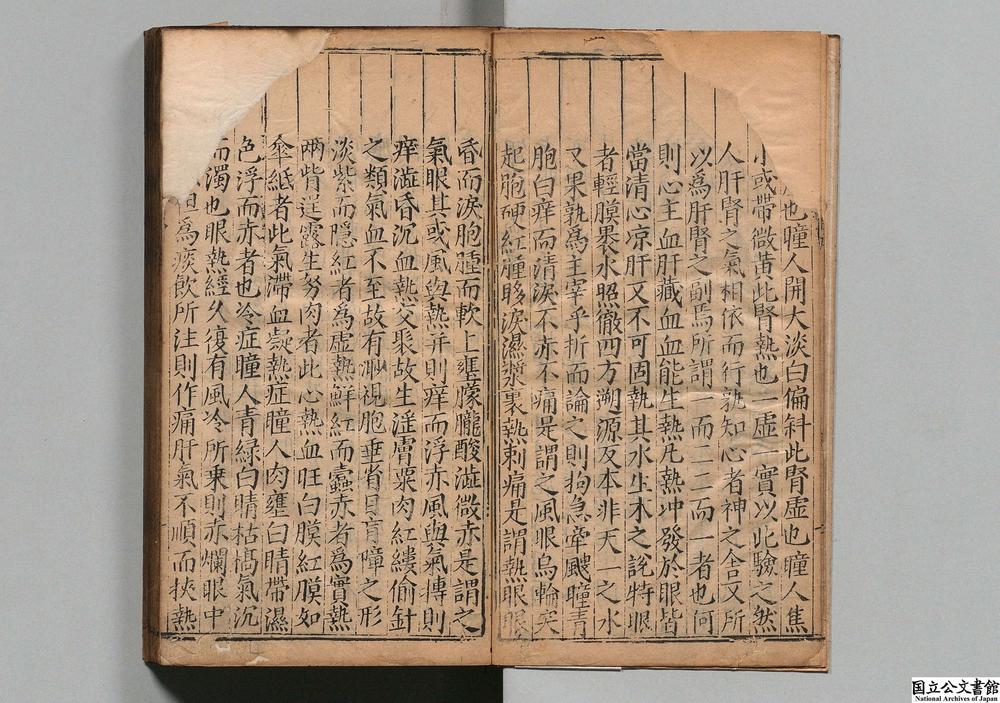 也瞳人開大淡白偏斜此腎虛也瞳人焦
小或帶微黃此腎熱也一虛一實以此驗之然
人肝腎之氣相依而行孰知心者神之舍又所
以爲肝腎之副焉所謂一而二二而一者也何
則心主血肝藏血血能生熱凡熱冲發於眼皆
當清心凉肝又不可固執其水生木之說特眼
者輕膜裹水照徹四方溯源反本非天一之水
又果孰爲主宰乎折而論之則拘急牽飕瞳青
胞白痒而清淚不赤不痛是謂之風眼烏輪突
起胞硬紅腫眵淚濕漿裏熱刺痛是謂熱眼眼
昏而淚胞腫而軟上壅朦朧酸澁微赤是謂之
氣眼其或風與熱并則痒而浮赤風與氣摶則
痒澁昏沉血熱交聚故生淫膚粟肉紅縷偷針
之類氣血不至故有眇視胞垂雀目盲嶂之形
淡紫而隱紅者為虛熱鮮紅而蠹赤者爲實熱
兩眥逞露生努肉者此心熱血旺白膜紅膜如
傘紙者此氣滯血凝熱症瞳人肉壅白睛帶濕
色浮而赤者也冷症瞳人青綠白睛枯槁氣沉
而濁也眼熱經久復有風冷所乗則赤爛眼中
爲痰飲所注則作痛肝氣不順而挾熱
国立公文書館
National Archives of Japan